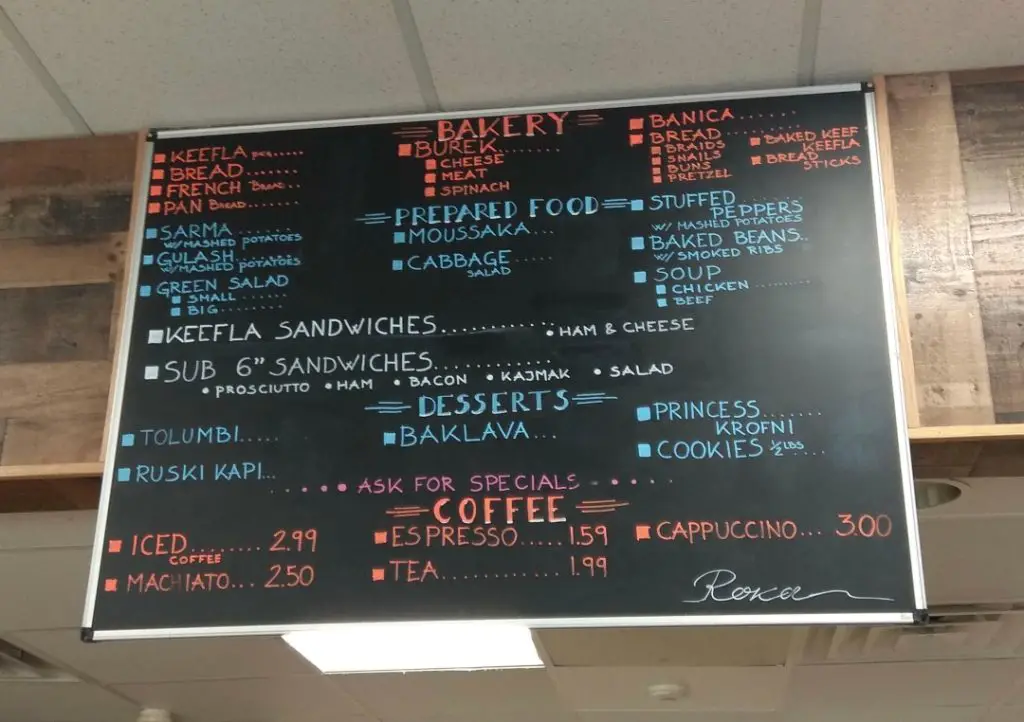 BAKERY
KEEFLA pcs.....
BREAD.......
FRENCH BREAD..
PAN BREAD.......
BUREK.......
CHEESE
MEAT
SPINACH
BANICA.......
BREAD.......
BRAIDS
SNAILS
BUNS
PRETZEL
BAKED KEEF
KEEFLA
BREAD
STICKS
PREPARED FOOD
SARMA........
W/MASHED POTATOES
GULASH..
W/MASHED POTATOES
GREEN SALAD
SMALL.......
BIG........
MOUSSAKA...
CABBAGE.....
SALAD
STUFFED
PEPPERS
W/ MASHED POTATOES
BAKED BEANS..
W/ SMOKED RIBS
SOUP
CHICKEN..........
BEEF
KEEFLA SANDWICHES............
• HAM & CHEESE
SUB 6" SANDWICHES............
• PROSCIUTTO • HAM • BACON • KAJMAK • SALAD
DESSERTS
TOLUMBI.....
BAKLAVA...
PRINCESS.......
KROFNI
RUSKI KAPI...
COOKIES ½LBS...
.....ASK FOR SPECIALS.....
COFFEE
ICED........ 2.99
COFFEE
ESPRESSO.....1.59
CAPPUCCINO... 3.00
MACHIATO... 2.50
TEA............ 1.99
Roka